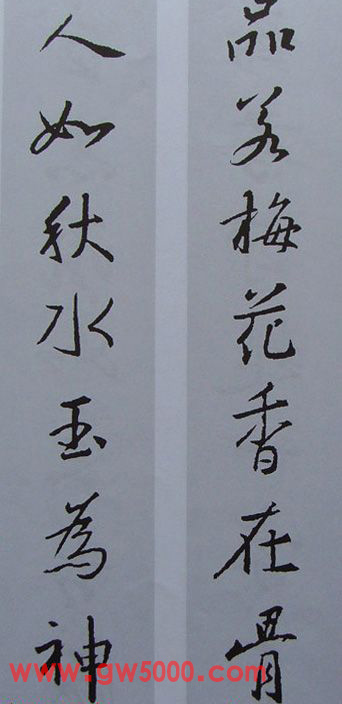 品若梅花香在骨
人如秋水玉為神
www.gw5000.com